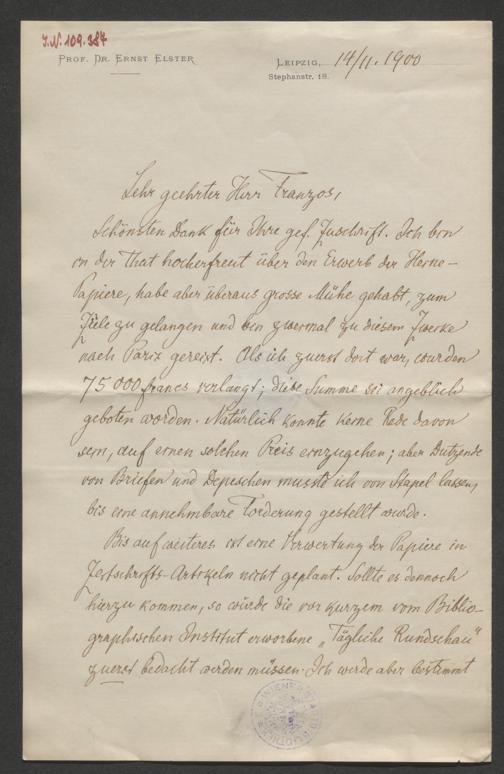 I.N. 109.387
PROF. DR. ERNST ELSTER
LEIPZIG, 14/11. 1900
Stephanstr. 18.
Sehr geehrter Herr Franzos,
Schönsten Dank für Ihre gef. Zuschrift. Ich bin
in der That hocherfreut über den Erwerb der Heine-
Papiere, habe aber überaus grosse Mühe gehabt, zum
Ziele zu gelangen und bin zweimal zu diesem Zwecke
nach Paris gereist. Als ich zuerst dort war, wurden
75 000 francs verlangt; diese Summe sei angeblich
geboten worden. Natürlich konnte keine Rede davon
sein, auf einen solchen Preis einzugehen; aber Dutzende
von Briefen und Depeschen musste ich von Stapel lassen,
bis eine annehmbare Forderung gestellt wurde.
Bis auf weiteres ist eine Verwertung der Papiere in
Zeitschrifts-Artikeln nicht geplant. Sollte es dennoch
hierzu kommen, so würde die vor kurzem vom Biblio-
graphischen Institut erworbene „Tägliche Rundschau"
zuerst bedacht werden müssen. Ich werde aber bestimmt